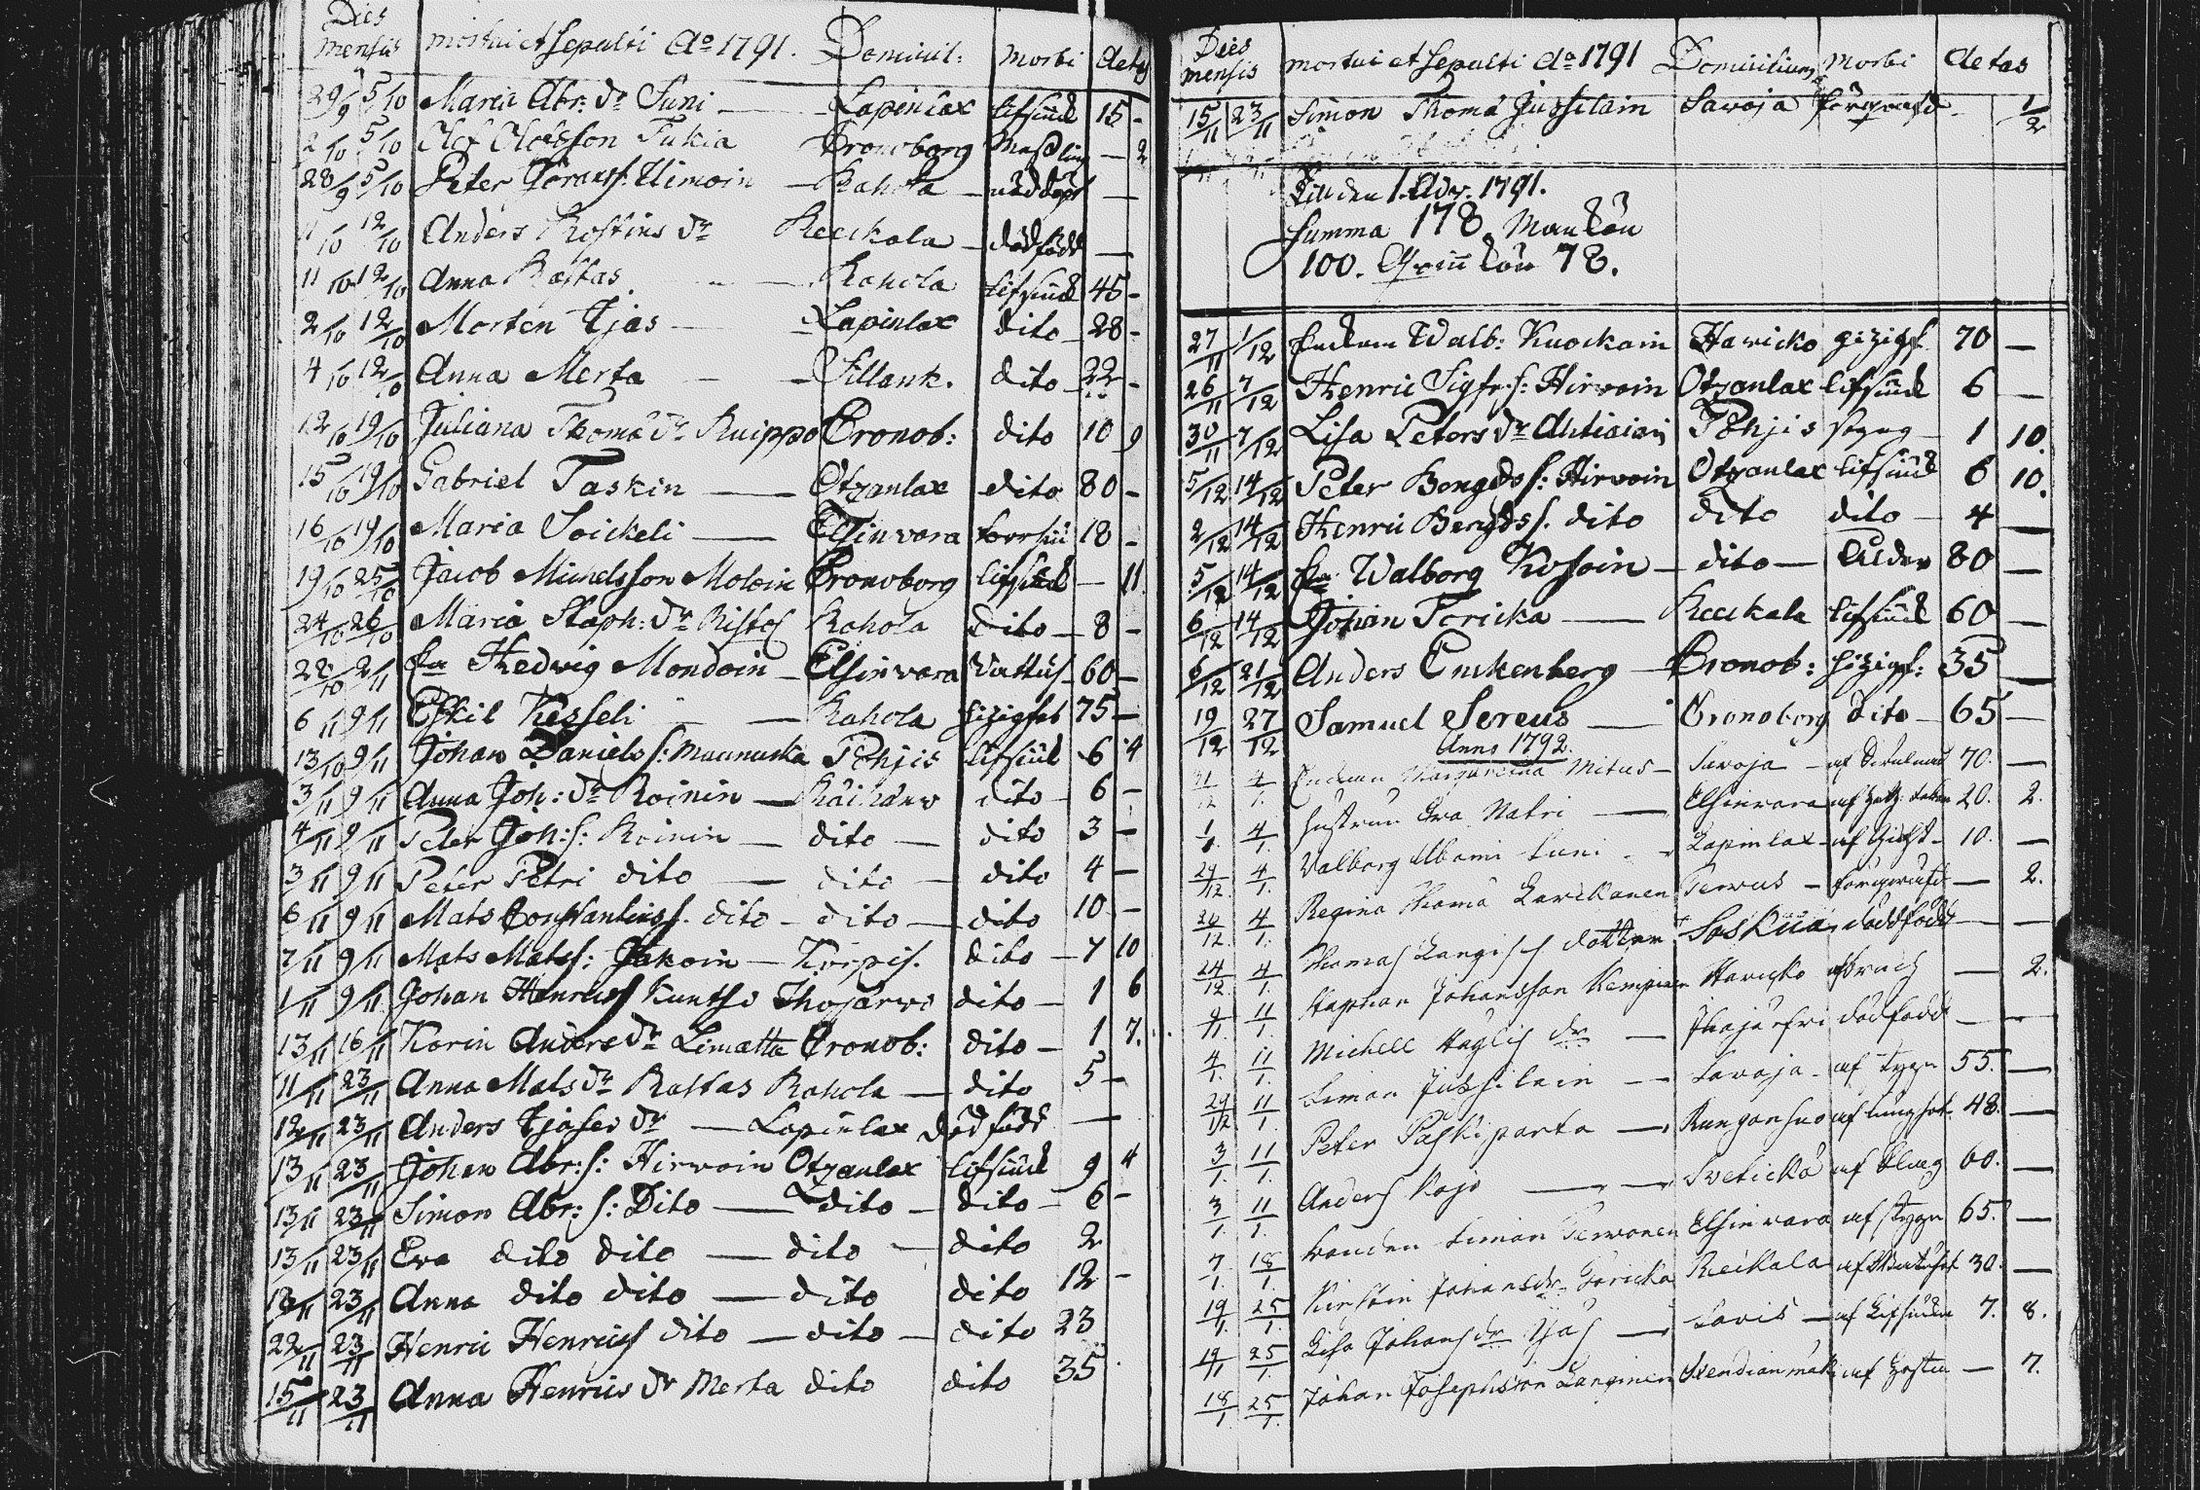 Dies mensis mortui et sepulti Ao 1791. Domicil: Morbi Aetas
29/9 5/10 Maria Abr: dr Suni — Lapinlax lifsiuk 15 -
2/10 5/10 Olof Olofsson Tukia Cronoborg Maßling — 2
28/9 5/10 Peter Göranss. Uimoin — Rahola — nöddöpt —
1/10 12/10 Anders Kostins dr Reekala — dödfödt —
11/10 12/10 Anna Rastas — Rahola lifsiuk 45 -
2/10 12/10 Morten Tjäs — Lapinlax dito 28 -
4/10 12/10 Anna Merta — Sillank. dito 22 -
12/10 19/10 Juliana Thomæ dr Kuippo Cronob: dito 10 9
15/10 19/10 Gabriel Taskin — Otzanlax dito 80 -
16/10 19/10 Maria Soickeli — Elsinvara torrsiu 18 -
19/10 25/10 Jacob Michelsson Moloin Cronoborg lifsiuk — 11.
24/10 26/10 Maria Staph: dr Rahola dito — 8 -
28/10 2/11 Ea Hedwig Mondoin — Elsinvara Vattus. 60 -
6/11 9/11 Eskil Kesseli — Rahola hizighet 75 —
13/10 9/11 Johan Daniels s: Maunuska Pohjis lifsiuk 6 4
3/11 9/11 Anna Joh: dr Roinin — dito — 6 —
4/11 9/11 Peter Joh: s: Roinin — dito — dito 3 —
3/11 9/11 Peter Petri dito — dito — dito 4 —
6/11 9/11 Mats Constantinss. dito — dito — dito 10 —
7/11 9/11 Mats Matss: Jakoin — Korpis. dito — 7 10
1/11 9/11 Johan Henricss Kuntsi Ihojärvi dito — 1 6
13/11 16/11 Karin Anders dr Limatta Cronob: dito — 1 7.
11/11 23/11 Anna Mats dr Rastas Rahola — dito 5 —
12/11 23/11 Anders Tjäses dr — Lapinlax Dödfödd —
13/11 23/11 Johan Abr: s: Hirvoin Otzanlax lifsiuk 9 4
13/11 23/11 Simon Abr: s: Dito — dito — dito — 6 -
13/11 23/11 Eva dito dito — dito — dito 2
13/11 23/11 Anna dito dito — dito dito 12 -
22/11 23/11 Henric Henricss dito — dito — dito 23
15/11 23/11 Anna Henrics dr Merta dito dito 35.
Dies mensis mortui et sepulti Ao 1791 Domicilium Morbi Aetas
15/11 23/11 Simon Thomæ Jussilain Savoja 1/2
Till den 1. Adv. 1791.
Summa 178. Mankön
100. Qvinkön 78.
27/11 1/12 Enkan Walb: Kuockain Hawicko 70 —
26/11 7/12 Henric Sigfr: s: Hirvoin Otzanlax lifsiuk 6 —
30/11 7/12 Lisa Peters dr Ahtiain Pohjis 1 10.
5/12 14/12 Peter Bengds s: Hirvoin Otzanlax lifsiuk 6 10.
2/12 14/12 Henric Bengds s. dito dito dito — 4 —
5/12 14/12 Ea Walborg Kosoin — dito — Ålder 80 —
6/12 14/12 Johan Toricka — Reekala lifsiuk 60 —
6/12 21/12 Anders Enckenberg — Cronob: hizigh: 35 —
19/12 27/12 Samuel Sereus — Cronoborg dito — 65 —
Anno 1792.
31/12 4/1. Enckan Margaretha Mitus — Savoja 70. —
1/1. 4/1. Hustrun Eva Natri — Elsinvara 20. 2.
29/12 4/1. Valborg Suni Lapinlax 10. —
26/12 4/1. Regina Thomæ Lavikanen Tervus — 2.
24/12 4/1. Thomas Langis dotter Soskua dödfödd —
9/1. 11/1. Staphan Johansson Kempinen Havicko — 2.
4/1. 11/1. Michell dr — Ihojärfvi dödfödd —
29/12 11/1. Simon Jussilain — Savoja af 55. —
3/1. 11/1. Peter Paskiparta — Kunganhuo af lungsot 48. —
3/1. 11/1. Anders Kojo — Sveticko af 60. —
7/1. 18/1. Simon Tervonen Elsinvara af styyn 65. —
19/1. 25/1. Kirstin Johansdr Toricka Reekala af 30. —
19/1. 25/1. Lisa Johansdr Tjäs — Lavis — af Lifsiukan 7. 8.
18/1. 25/1. Johan Josephsson Langinen af Hosta — 7.